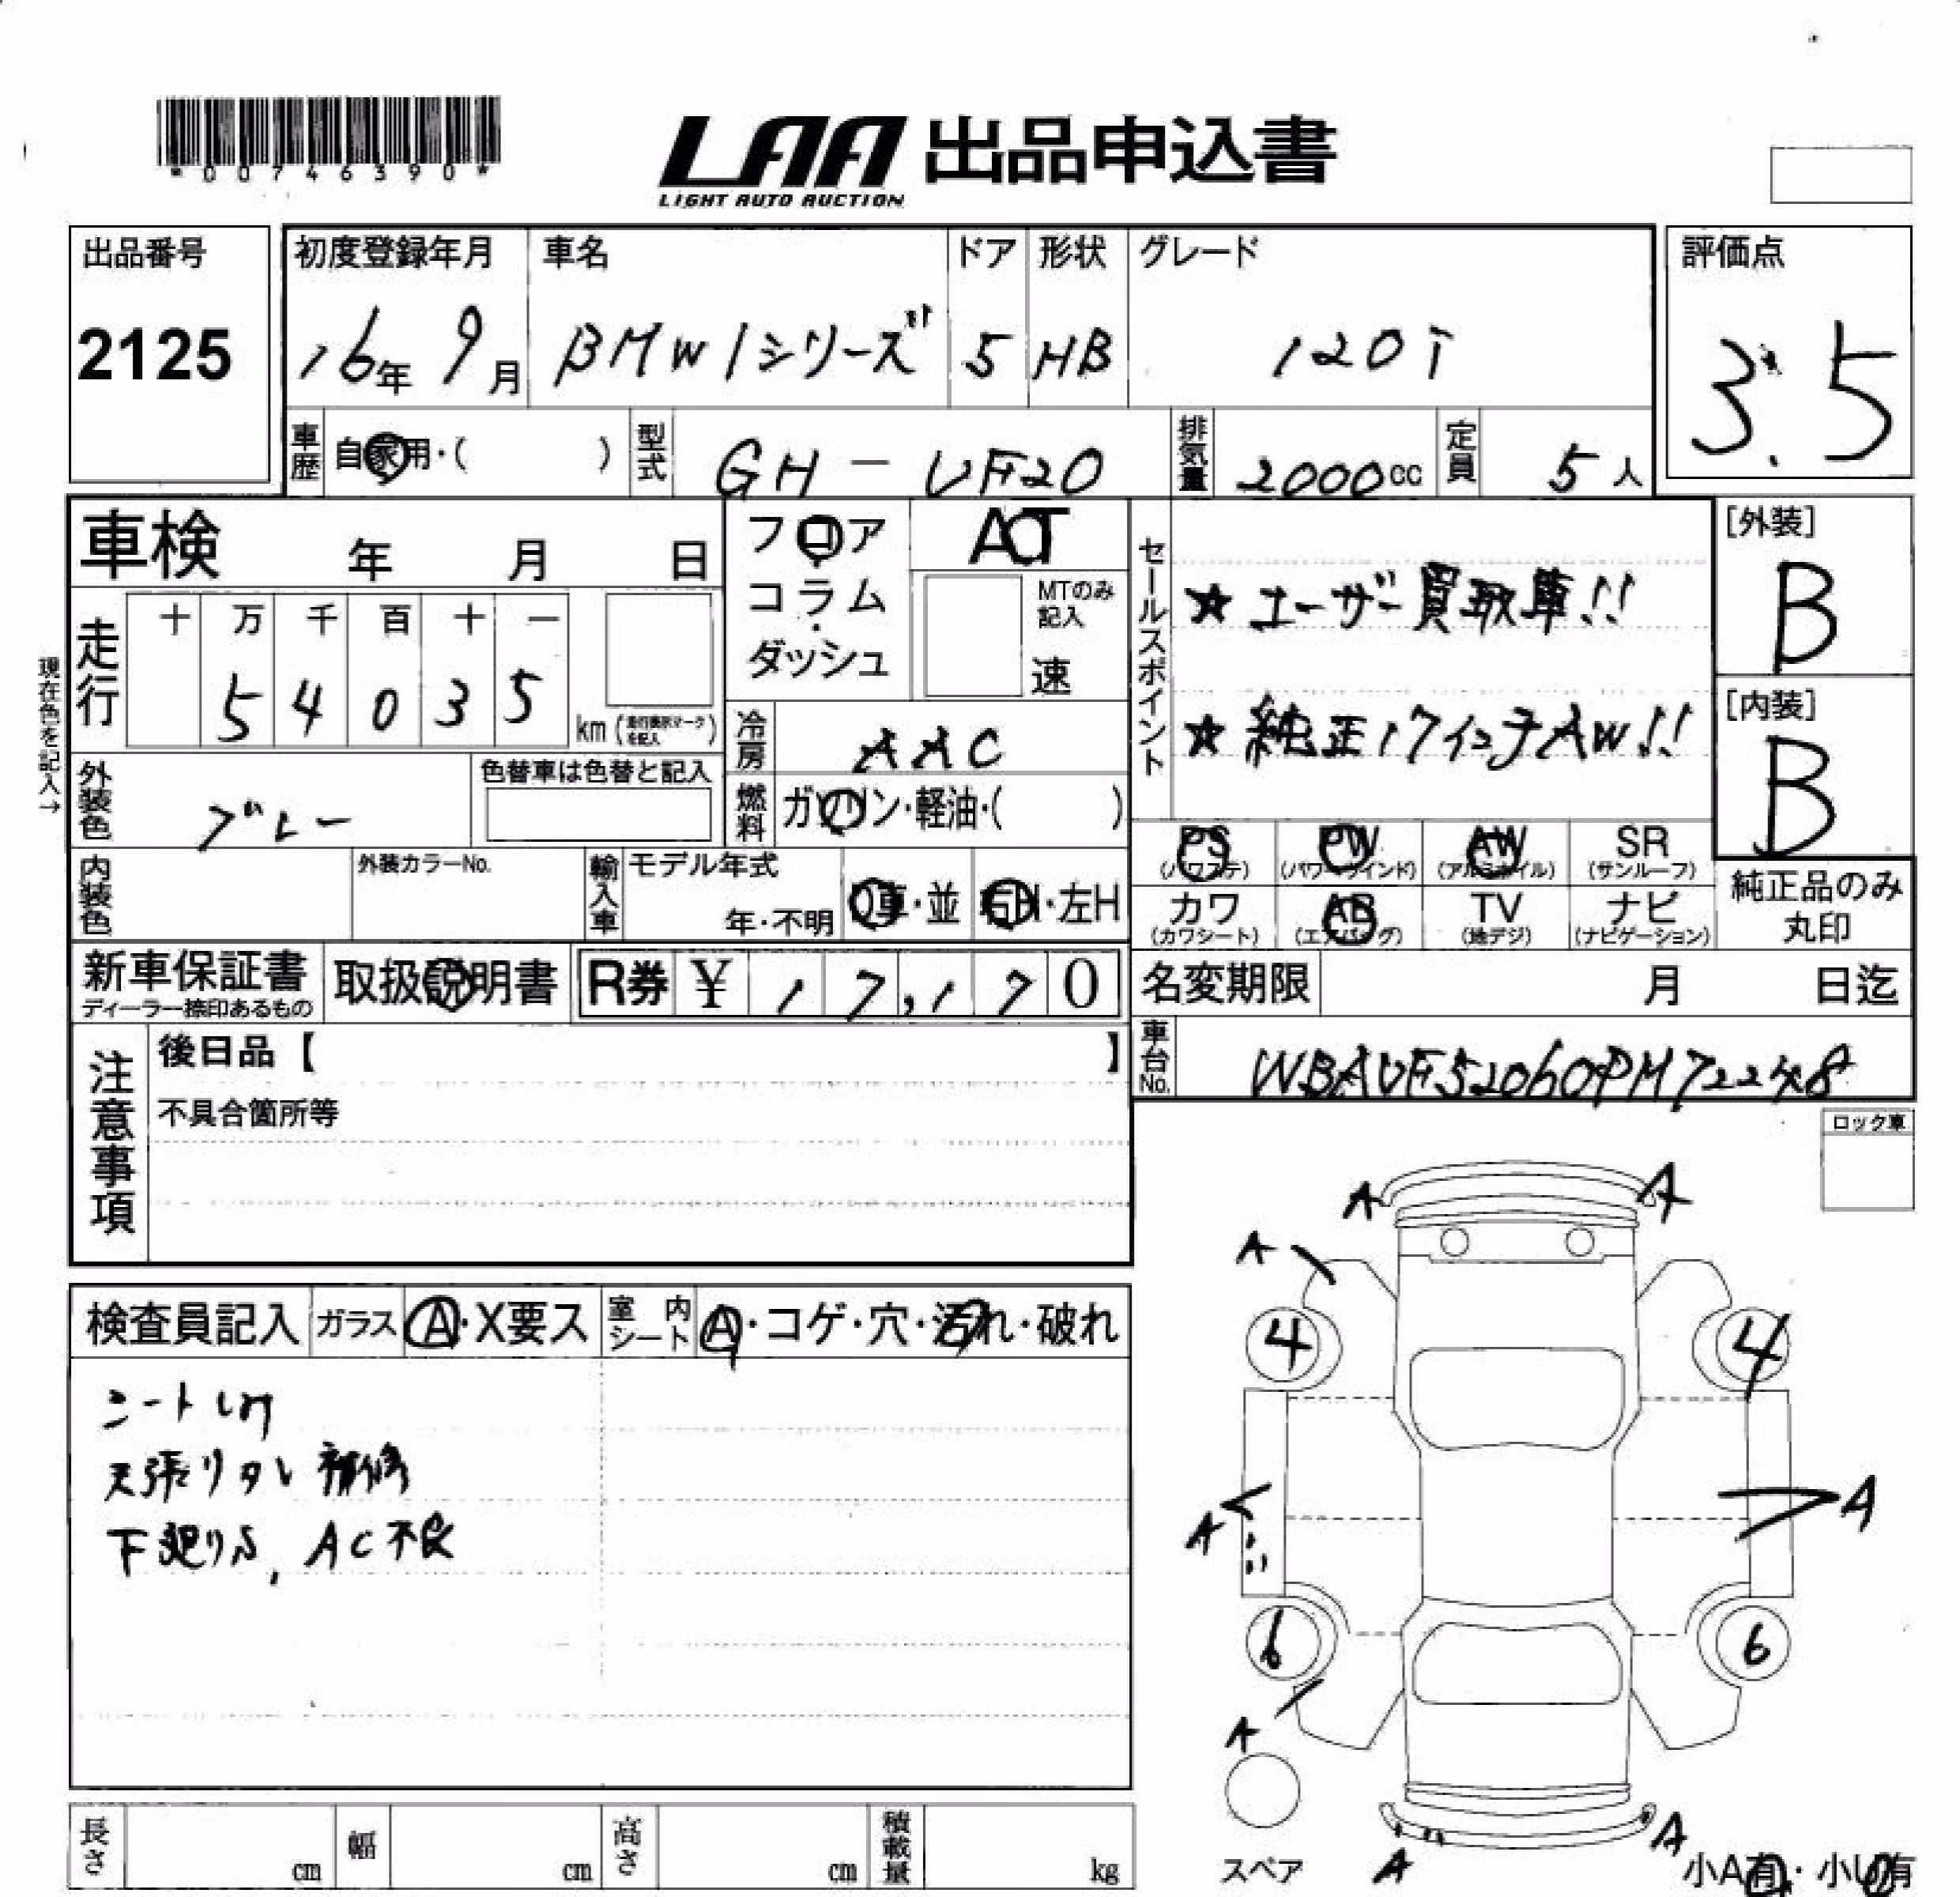 *00746390*
LAA 出品申込書
LIGHT AUTO AUCTION
出品番号
2125
初度登録年月 車名 ドア 形状 グレード
16年 9月 BMW 1シリーズ 5 HB 120i
評価点
3.5
車歴 自家用・( ) 型式 GH-UF20 排気量 2000cc 定員 5人
車検 年 月 日
フロア
コラム
・
ダッシュ
AT
MTのみ記入
速
現在色を記入→
走行
十 万 千 百 十 一
5 4 0 3 5 km (走行表示マークを記入)
冷房 AAC
燃料 ガソリン・軽油・( )
外装色 グレー
色替車は色替と記入
内装色
外装カラーNo.
輸入車 モデル年式
年・不明 D車・並 右H・左H
セールスポイント
★ ユーザー買取車!!
★ 純正17インチAW!!
[外装]
B
[内装]
B
PS (パワステ) PW (パワーウインド) AW (アルミホイル) SR (サンルーフ)
カワ (カワシート) AB (エアバッグ) TV (地デジ) ナビ (ナビゲーション)
純正品のみ
丸印
新車保証書
ディーラー捺印あるもの
取扱説明書
R券 ¥ 17,170
名変期限 月 日迄
車台No.
注意事項
後日品【 】
不具合箇所等
ロック車
検査員記入 ガラス A・X要ス 室内シート A・コゲ・穴・汚れ・破れ
天張りタレ 補修
下廻りS, AC不良
A A
A
4 4
A A
6 6
A
スペア
A A
小A有・小U有
長さ cm 幅 cm 高さ cm 積載量 kg